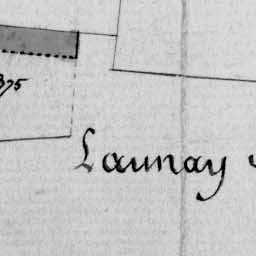 375
Launay